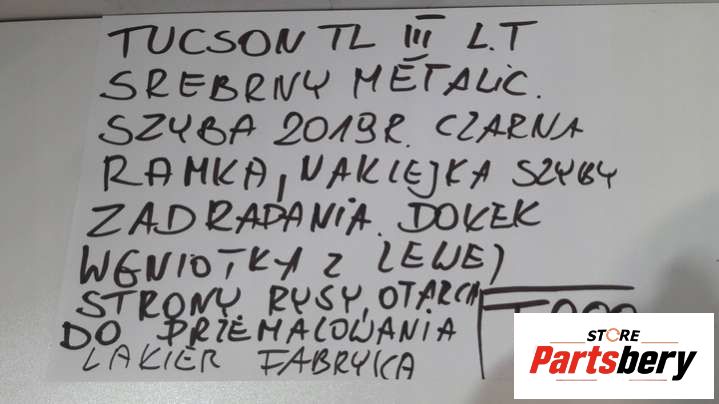 TUCSON TL III L.T
SREBRNY METALIC.
SZYBA 2019R. CZARNA
RAMKA, NAKLEJKA SZYBY
ZADRAPANIA. DOŁEK
WGNIOTKY Z LEWEJ
STRONY RYSY, OTARCIA
DO PRZEMALOWANIA
LAKIER FABRYKA
STORE
Partsbery